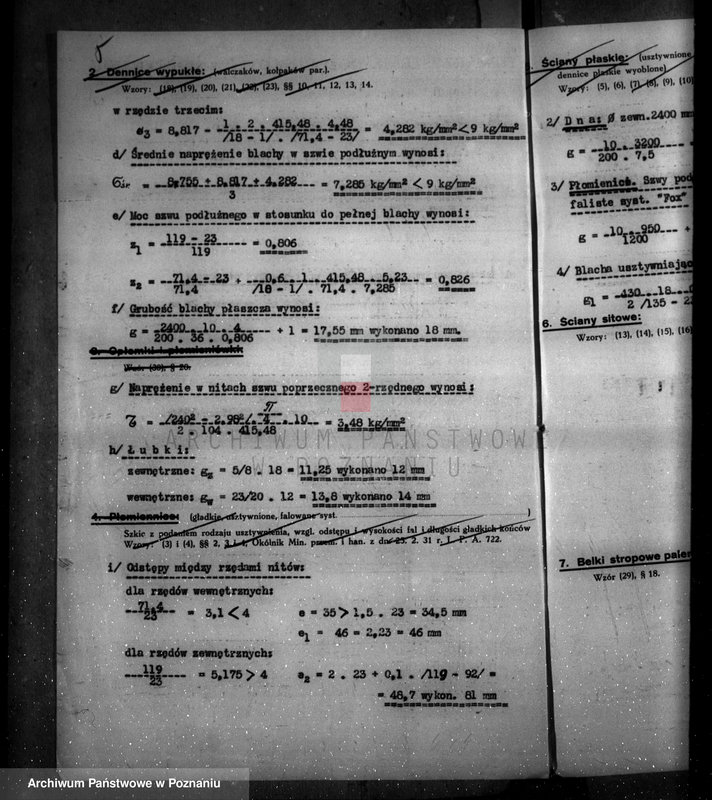 2. Dennice wypukłe: (walczaków, kołpaków par.).
Wzory: (18), (19), (20), (21), (22), (23), §§ 10, 11, 12, 13, 14.
w rzędzie trzecim:
σ3 = 8,817 - 1 . 2 . 415,48 . 4,48 / /18 - 1/ . /71,4 - 23/ = 4,282 kg/mm² < 9 kg/mm²
d/ Średnie naprężenie blachy w szwie podłużnym wynosi:
σśr = 8,755 + 8,817 + 4,282 / 3 = 7,285 kg/mm² < 9 kg/mm²
e/ Moc szwu podłużnego w stosunku do pełnej blachy wynosi:
z1 = 119 - 23 / 119 = 0,806
z2 = 71,4 - 23 / 71,4 + 0,6 . 1 . 415,48 . 5,23 / /18 - 1/ . 71,4 . 7,285 = 0,826
f/ Grubość blachy płaszcza wynosi:
g = 2400 . 10 . 4 / 200 . 36 . 0,806 + 1 = 17,55 mm wykonano 18 mm.
3. Opłomki i płomieniówki
Wzór (30), § 20.
g/ Naprężenie w nitach szwu poprzecznego 2-rzędnego wynosi:
τ = /240² - 2,98²/ . π/4 . 10 / 2 . 104 . 415,48 = 3,48 kg/mm²
h/ Łubki:
zewnętrzne: gz = 5/8 . 18 = 11,25 wykonano 12 mm
wewnętrzne: gw = 23/20 . 12 = 13,8 wykonano 14 mm
4. Płomiennice: (gładkie, usztywnione, falowane syst. )
Szkic z podaniem rodzaju usztywnienia, wzgl. odstępu i wysokości fal i długości gładkich końców
Wzory: (3) i (4), §§ 2, 3 i 4, Okólnik Min. przem. i han. z dn. 25. 2. 31 r. L. P. A. 722.
i/ Odstępy między rzędami nitów:
dla rzędów wewnętrznych:
71,4 / 23 = 3,1 < 4 e = 35 > 1,5 . 23 = 34,5 mm
e1 = 46 = 2,23 = 46 mm
dla rzędów zewnętrznych:
119 / 23 = 5,175 > 4 e2 = 2 . 23 + 0,1 . /119 - 92/ =
= 48,7 wykon. 81 mm
Ściany płaskie: (usztywnione
dennice płaskie wyoblone)
Wzory: (5), (6), (7), (8), (9), (10)
2/ Dna: Ø zewn. 2400 mm
g = 10 . 3200 / 200 . 7,5 =
3/ Płomienice. Szwy pod
faliste syst. "Fox"
g = 10 . 950 / 1200 +
4/ Blacha usztywniając
g1 = 430 . 18 . / 2 /135 - 23
6. Ściany sitowe:
Wzory: (13), (14), (15), (16)
7. Belki stropowe palen
Wzór (29), § 18.
ARCHIWUM PAŃSTWOWE
W POZNANIU
Archiwum Państwowe w Poznaniu